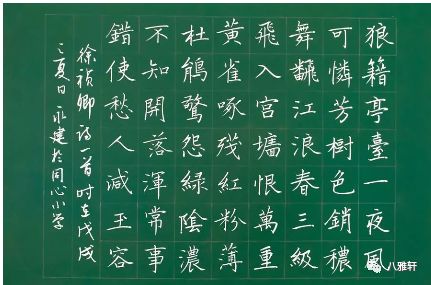 狼籍亭臺一夜風
可憐芳樹色銷穠
舞飜江浪春三級
飛入宫墻恨萬重
黃雀啄殘紅粉薄
杜鵑驚怨綠陰濃
不知開落渾常事
錯使愁人減玉容
徐祯卿詩一首时在戊戌
之夏日永建於同心小学
八雅轩